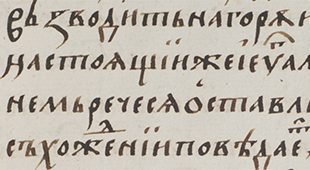 възводить на горѫ и
настоѧщїи же їеꙋ҃ал
немь речесѧ ѡставлі
съхоженїи повѣдае